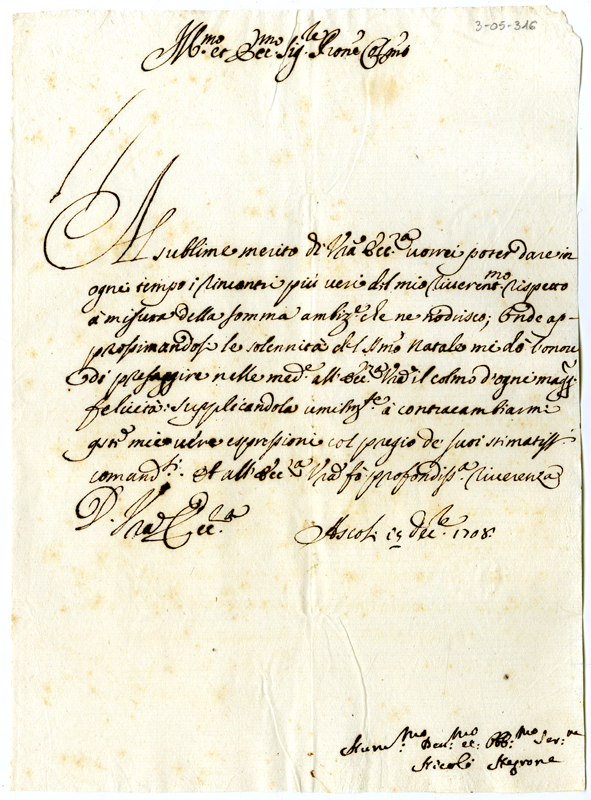 3-05-316
Ill.mo et Ecc.mo Sig.re P'rone Col.mo
Al sublime merito di V'ra Ecc.za vorrei poter dare in
ogni tempo i rincontri più veri del mio riverent.mo rispetto
à misura della somma ambiz.e che ne nodrisco; Onde ap-
prossimandosi le solennità del S.mo Natale mi dò l'onore
di presaggire nelle med.e all'Ecc.za V'ra il colmo d'ogni magg.r
felicità: supplicandola umilm.te à contracambiarmi
q'ste mie vere espressioni col pregio de suoi stimatiss.
comand.ti. Et all'Ecc.za V'ra fò profondiss.a riverenza
D. V'ra Ecc.za
Ascoli 15 Dec.re 1708.
Hum.mo Dev.mo et Obb.mo Ser.re
Nicolò Negrone